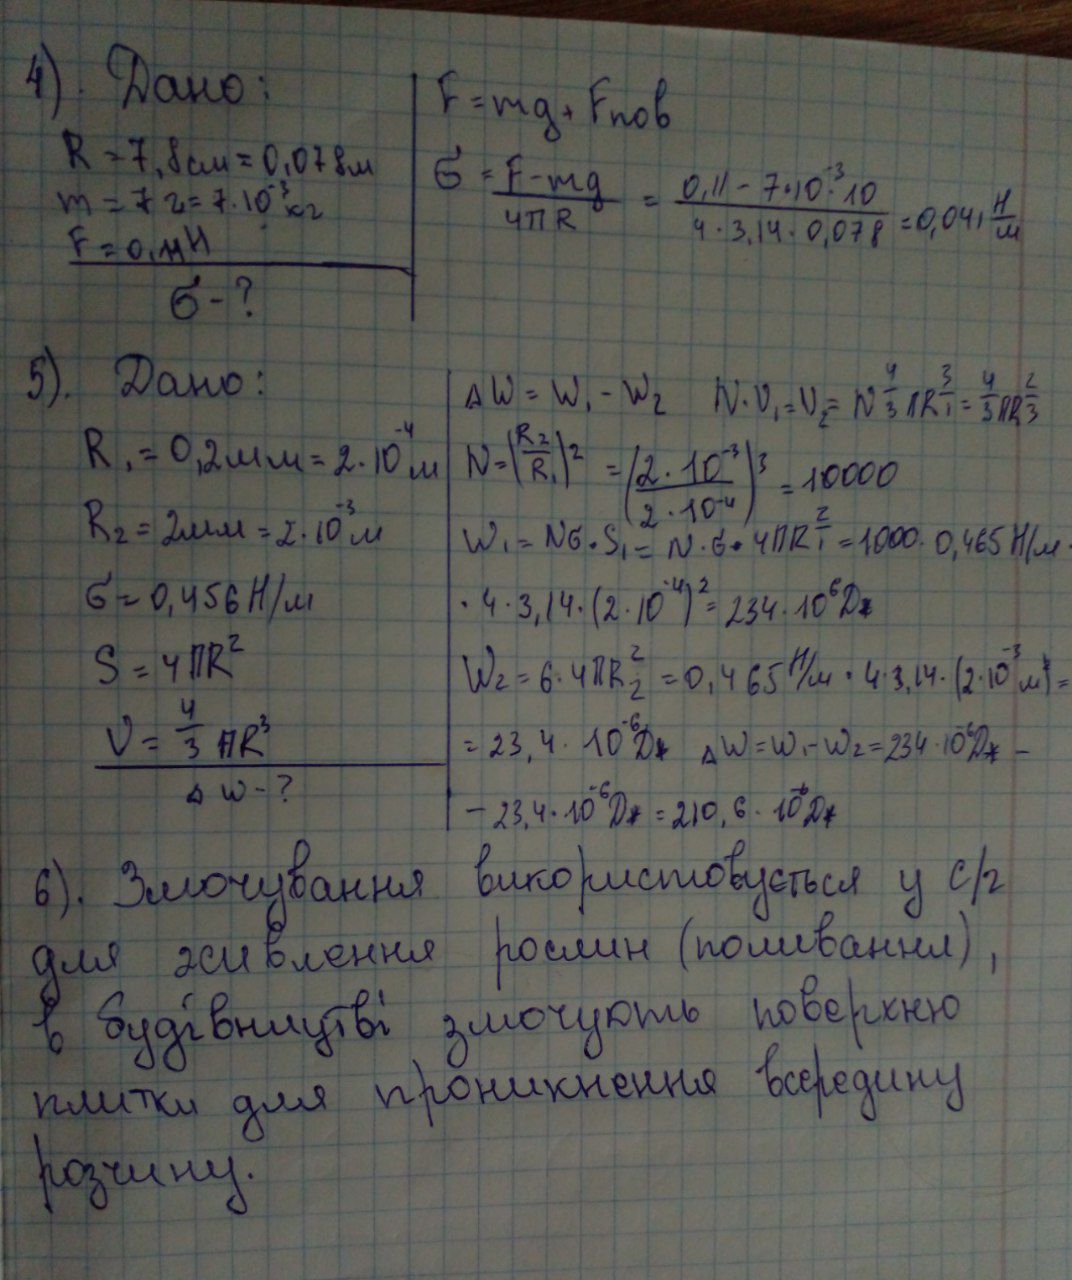 4). Дано:
R = 7,8см = 0,078м
m = 7 г = 7·10⁻³ кг
F = 0,11Н
σ - ?
F = mg + Fпов
σ = (F - mg)/(4ПR) = (0,11 - 7·10⁻³·10)/(4·3,14·0,078) = 0,041 Н/м
5). Дано:
R₁ = 0,2мм = 2·10⁻⁴м
R₂ = 2мм = 2·10⁻³м
σ = 0,456 Н/м
S = 4ПR²
V = 4/3 ПR³
Δ W - ?
ΔW = W₁ - W₂ N·V₁ = V₂ = N 4/3 ПR₁³ = 4/3 ПR₃²
N = (R₂/R₁)² = (2·10⁻³/2·10⁻⁴)³ = 10000
W₁ = Nσ·S₁ = N·σ·4ПR₁² = 1000·0,465 Н/м·
·4·3,14·(2·10⁻⁴)² = 234·10⁶Дж
W₂ = σ·4ПR₂² = 0,465 Н/м·4·3,14·(2·10⁻³м)² =
= 23,4·10⁻⁶Дж ΔW = W₁-W₂ = 234·10⁻⁶Дж -
- 23,4·10⁻⁶Дж = 210,6·10⁻⁶Дж
6). Змочування використовується у с/г
для живлення рослин (поливання),
в будівництві змочують поверхню
плитки для проникнення всередину
розчину.